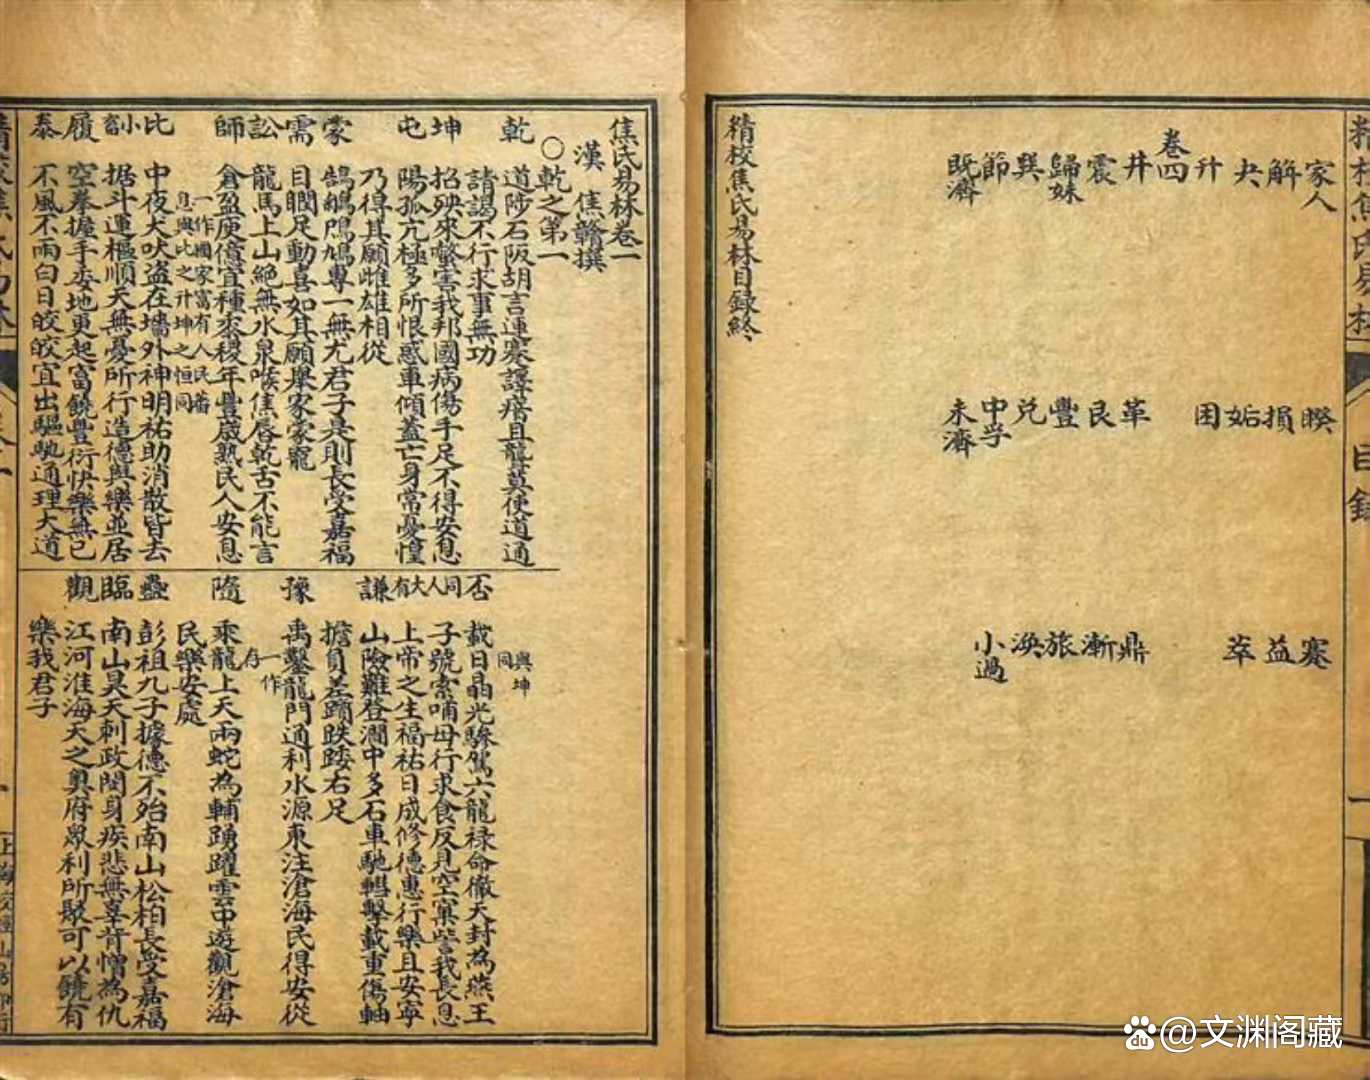 家人
解
夬
升
卷四
井
震
歸妹
巽
節
既濟
睽
損
姤
困
革
艮
豐
兌
中孚
未濟
蹇
益
萃
鼎
漸
旅
渙
小過
精校焦氏易林目録終
焦氏易林卷一
漢 焦贛撰
○乾之第一
乾 道陟石阪胡言連蹇譯瘖且聾莫使道通
請謁不行求事無功
坤 招殃來螫害我邦國病傷手足不得安息
屯 陽孤亢極多所恨惑車傾蓋亡身常憂惶
乃得其願雌雄相從
蒙 鵠鵴鳲鳩專一無尤君子是則長受嘉福
需 目瞤足動喜如其願舉家蒙寵
訟 龍馬上山絕無水泉喉焦唇乾舌不能言
師 倉盈庾億宜種黍稷年豐歲熟民人安息
一作國家富有人民蕃
息與比之升坤之恒同
比 中夜犬吠盜在墻外神明祐助消散皆去
小畜 据斗運樞順天無憂所行造德與樂並居
履 空拳握手委地更起富饒豐衍快樂無已
泰 不風不雨白日皎皎宜出驅馳通理大道
否 載日晶光驂駕六龍禄命徹天封為燕王
與坤
同
同人 子號索哺母行求食反見空窠訾我長息
大有 上帝之生福祐日成修德惠行樂且安寧
謙 山險難登澗中多石車馳轊擊載重傷軸
擔負差躓跌踒右足
豫 禹鑿龍門通利水源東注滄海民得安從
一作
存
隨 乘龍上天兩蛇為輔踴躍雲中遊觀滄海
民樂安處
蠱 彭祖九子據德不殆南山松柏長受嘉福
臨 南山昊天刺政閔身疾悲無辜背憎為仇
觀 江河淮海天之奧府眾利所聚可以饒有
樂我君子
@文渊阁藏